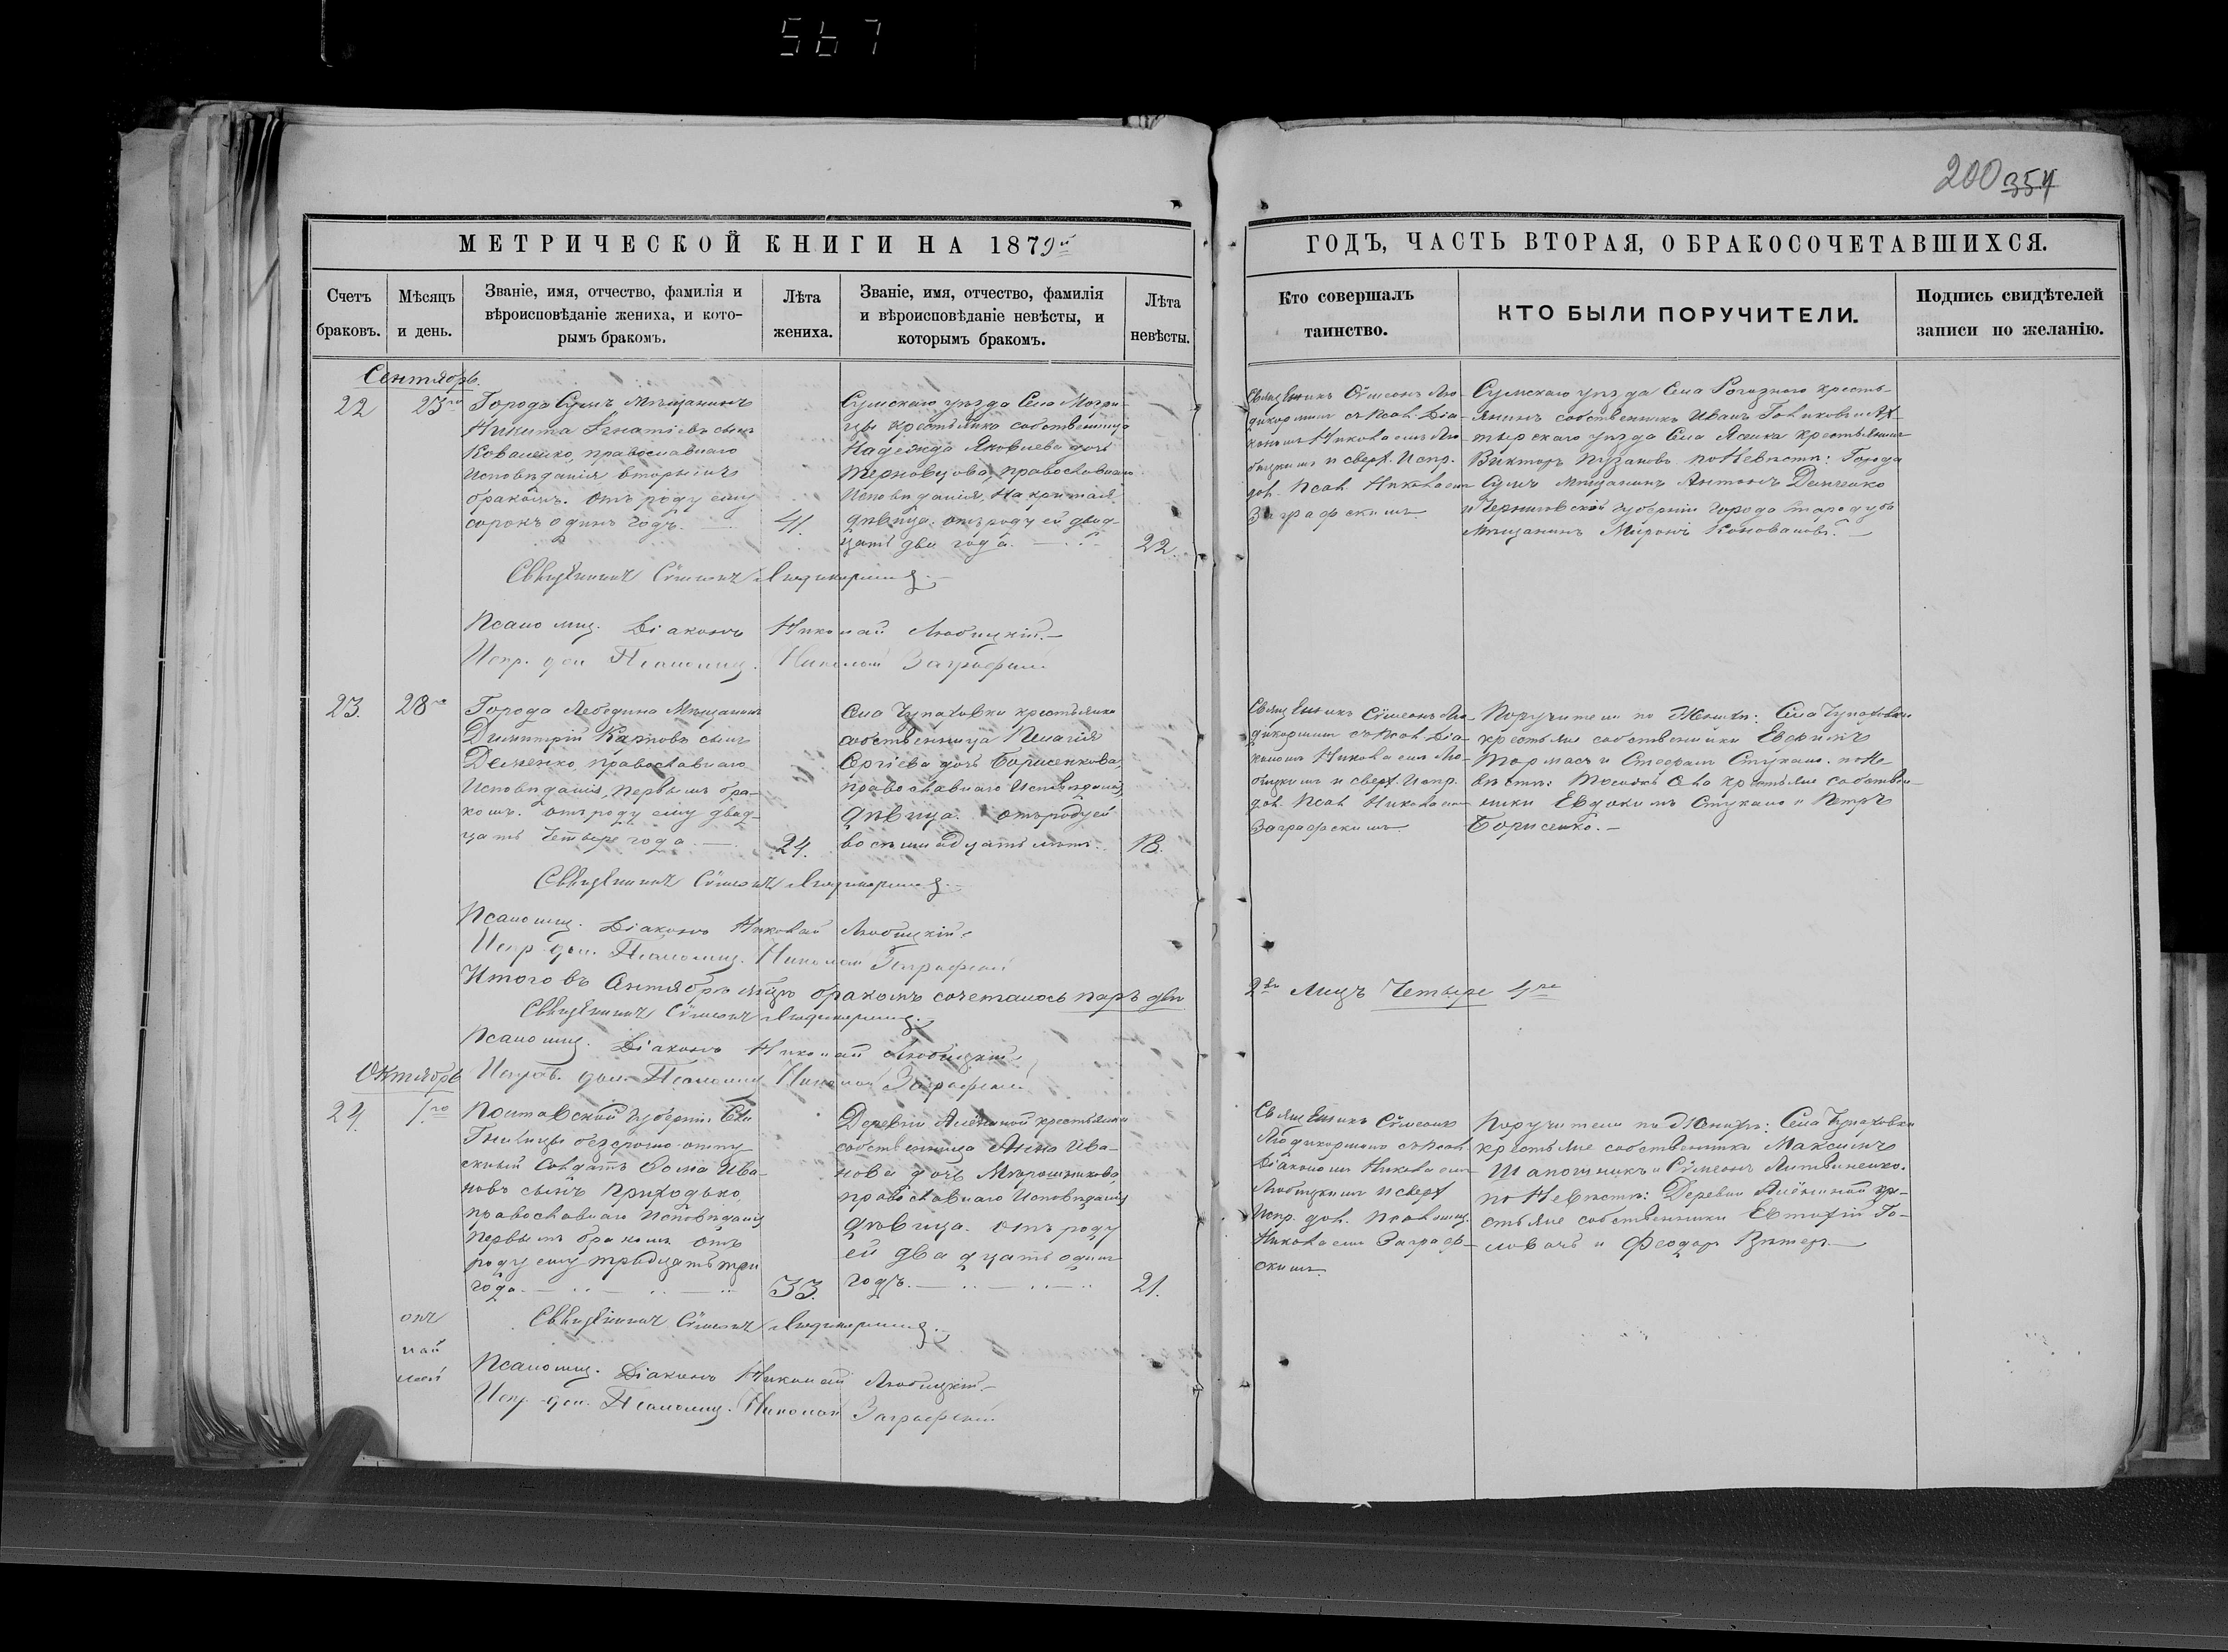 567
200 354
МЕТРИЧЕСКОЙ КНИГИ НА 1879й
ГОДЪ, ЧАСТЬ ВТОРАЯ, О БРАКОСОЧЕТАВШИХСЯ.
Счетъ
браковъ.
Мѣсяцъ
и день.
Званіе, имя, отчество, фамилія и
вѣроисповѣданіе жениха, и кото-
рымъ бракомъ.
Лѣта
жениха.
Званіе, имя, отчество, фамилія
и вѣроисповѣданіе невѣсты, и
которымъ бракомъ.
Лѣта
невѣсты.
Кто совершалъ
таинство.
КТО БЫЛИ ПОРУЧИТЕЛИ.
Подпись свидѣтелей
записи по желанію.
Сентябрь.
22
23го
Города Сумъ Мѣщанинъ
Никита Игнатіевъ сынъ
Коваленко, православнаго
исповѣданія вторымъ
бракомъ. отъ роду ему
сорокъ одинъ годъ.
41.
Сумскаго уѣзда Села Могри-
цы крестьянка собственница
Надежда Яковлева дочь
Терновцова, православнаго
исповѣданія,
дѣвица. отъ роду ей двад-
цать два года.
22.
Священникъ Сѵмеонъ Лю-
дикорминъ съ Псал. Діа-
кономъ Николаемъ Лю-
бицкимъ и сверх. Испр.
дол. Псал. Николаемъ
Заграфскимъ
Сумскаго уѣзда Села Рогознаго кресть-
янинъ собственникъ Иванъ Голиковъ и Ах-
тырскаго уѣзда Села Ясенка крестьянинъ
Викторъ Пузановъ. по Невѣстѣ: Города
Сумъ Мѣщанинъ Антонъ Демченко
и Черниговской губерніи города Стародуба
Мѣщанинъ Миронъ Коноваловъ.
Священникъ Сѵмеонъ Людикорминъ.
Псаломщ. Діаконъ Николай Любицкій.
Испр. дол. Псаломщ. Николай Заграфскій
23.
28го
Города Лебедина Мѣщанинъ
Димитрій Карповъ сынъ
Деменко, православнаго
исповѣданія, первымъ бра-
комъ. отъ роду ему двад-
цать четыре года.
24.
Села Чупаховки крестьянка
собственница Пелагія
Сергіева дочь Борисенкова,
православнаго исповѣданія,
дѣвица. отъ роду ей
восемнадцать лѣтъ.
18.
Священникъ Сѵмеонъ Лю-
дикорминъ съ Псал. Діа-
кономъ Николаемъ Лю-
бицкимъ и сверх. Испр.
дол. Псал. Николаемъ
Заграфскимъ
Поручители по Женихѣ: Села Чупаховки
крестьяне собственники Евфимъ
Тормасъ и Стефанъ Стукало. по Не
вѣстѣ: Тогожъ Села крестьяне собствен-
ники Евдокимъ Стукало и Петръ
Борисенко.
Священникъ Сѵмеонъ Людикорминъ.
Псаломщ. Діаконъ Николай Любицкій.
Испр. дол. Псаломщ. Николай Заграфскій
Итого въ Сентябрѣ мѣсяцѣ бракомъ сочеталось паръ двѣ
2вѣ Лицъ Четыре 4ре
Священникъ Сѵмеонъ Людикорминъ.
Псаломщ. Діаконъ Николай Любицкій.
Октябрь
Испр. дол. Псаломщ. Николай Заграфскій
24
1го
Полтавской Губерніи
безсрочно отпу
скный Солдатъ Ѳома Ива-
новъ сынъ Приходько,
православнаго исповѣданія
первымъ бракомъ отъ
роду ему тридцать три
года.
33.
Деревни Алёшиной крестьянка
собственница Анна Ива-
нова дочь Мѣрошникова,
православнаго исповѣданія
дѣвица. отъ роду
ей двадцать одинъ
годъ.
21.
Священникъ Сѵмеонъ
Людикорминъ съ Псал.
Діакономъ Николаемъ
Любицкимъ и сверх
Испр. дол. Псаломщ.
Николаемъ Заграф-
скимъ.
Поручители по Женихѣ: Села Чупаховки
крестьяне собственники Максимъ
Шапошникъ и Сѵмеонъ Литвиненко.
по Невѣстѣ: Деревни Алёшиной кре-
стьяне собственники Евтихій Го-
ловачъ и Феодоръ
Священникъ Сѵмеонъ Людикорминъ.
Псаломщ. Діаконъ Николай Любицкій.
Испр. дол. Псаломщ. Николай Заграфскій